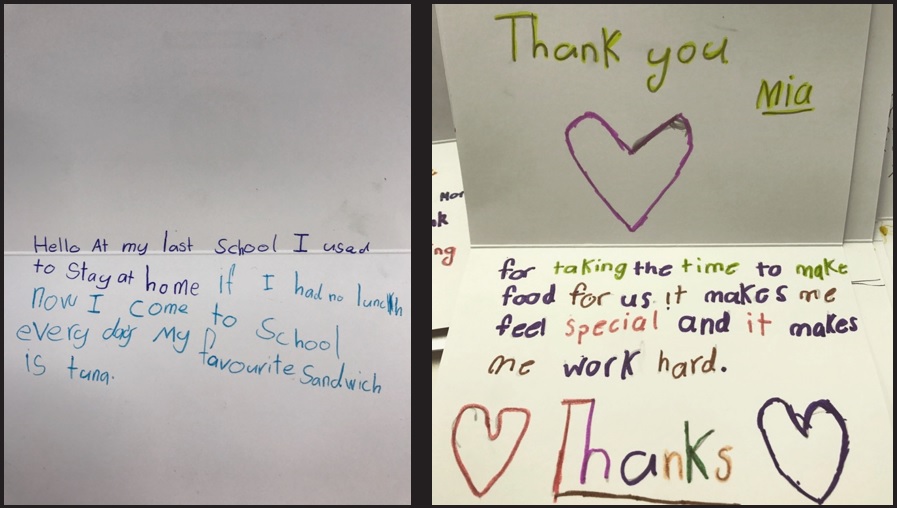 Hello At my last School I used
to Stay at home if I had no lunckh
now I come to School
every day My favourite Sandwich
is tuna.
Thank you
Mia
for taking the time to make
food for us it makes me
feel special and it makes
me work hard.
Thanks